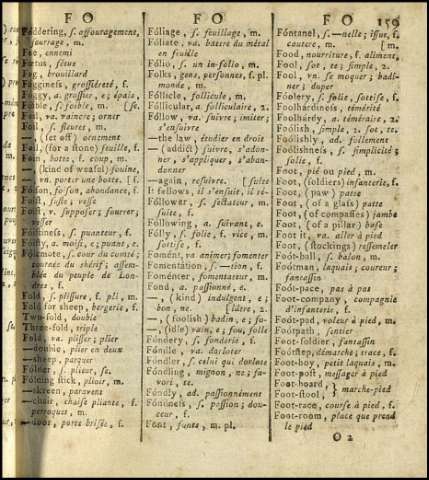 FO
FO
FO
150
Foddering, ſ. affouragement,
fourrage, m.
Foe, ennemi
Fœtus, fétus
Fog, brouillard
Fogginess, groſſiéreté, f.
Foggy, a. groſſier, e; épais,
Foible, ſ. foible, m. [ſe.
Foil, va. vaincre; orner
Foil, ſ. fleuret, m.
—, (ſet off) ornement
—, (for a ſtone) feuille, f.
Foin, botte, f. coup, m.
—, (kind of weaſel) fouine,
—, va. porter une botte. [f.
Foiſon, foiſon, abondance, f.
Foiſt, fuſte, veſſe
Foiſt, v. ſuppoſer; fourrer,
veſſer
Foiſtineſs, ſ. puanteur, f.
Foiſty, a. moiſi, e; puant, e.
Folkmote, ſ. cour du comté;
tournée du shérif; aſſemblée
du peuple de Londres,
f.
Fold, ſ. pliſſure, f. pli, m.
Fold for sheep, bergerie, f.
Two-fold, double
Three-fold, triple
Fold, va. pliſſer; plier
—double, plier en deux
—sheep, parquer
Folder, ſ. plieur, ſe.
Folding ſtick, plioir, m.
—skreen, paravent
—chair, chaiſe pliante, f.
perroquet, m.
—door, porte briſée, f.
Fóliage, ſ. feuillage, m.
Fóliate, va. batere du métal
en feuille
Fólio, ſ. un in-folio, m.
Folks, gens, perſonnes, f. pl.
monde, m.
Fóllicle, follicule, m.
Follícular, a. folliculaire, 2.
Fóllow, va. ſuivre; imiter;
s'enſuivre
—the law, étudier en droit
—(addict) ſuivre, s'adonner,
s'appliquer, s'abandonner
—again, reſuivre [ſuite
It follows, il s'enſuit, il ré-
Fóllower, ſ. ſectateur, m.
ſuite, f.
Fóllowing, a. ſuivant, e.
Fólly, ſ. folie, f. vice, m.
ſottiſe, f.
Fomént, va animer; fomenter
Fomentátion, ſ. —tion, f.
Foménter, fomentateur, m.
Fond, a. paſſionné, e.
—, (kind) indulgent, e;
bon, ne. [lâtre, 2.
—, (foolish) badin, e; fo-
—, (idle) vain, e; fou, folle
Fóndery, ſ. fonderie, f.
Fóndle, va. dorloter
Fóndler, ſ. celui qui dorlote
Fóndling, mignon, ne; favori,
te.
Fóndly, ad. paſſionnément
Fóndneſs, ſ. paſſion; douceur,
f.
Font, fonts, m. pl.
Fóntanel, ſ. —nelle; iſſue, f.
cautere, m. [m.
Food, nourriture, f. aliment,
Fool, ſot, te; ſimple, 2.
Fool, vn. ſe moquer; badiner;
duper
Fóolery, ſ. folie, ſottiſe, f.
Foolhárdineſs, témérité
Foolhárdy, a. téméraire, 2.
Fóolish, ſimple, 2. ſot, te.
Fóolishly, ad. follement
Fóolishneſs, ſ. ſimplicité;
folie, f.
Foot, pié ou pied, m.
Foot, (ſoldiers) infanterie, f.
Foot, (paw) patte
Foot, (of a glaſs) patte
Foot, (of compaſſes) jambe
Foot, (of a pillar) baſe
Foot it, va. aller à pied
Foot, (ſtockings) reſſemeler
Foot-ball, ſ. balon, m.
Fóotman, laquais; coureur;
fantaſſin
Foot-pace, pas à pas
Foot-company, compagnie
d'infanterie, f.
Foot-pad, voleur à pied, m.
Fóotpath, ſentier
Foot-ſoldier, fantaſſin
Fóotſtep, démarche; trace, f.
Foot-boy, petit laquais, m.
Foot-poſt, meſſager à pied
Foot-board, } marche-pied
Foot-ſtool, }
Foot-race, courſe à pied, f.
Foot-room, place que prend
le pied
O 2